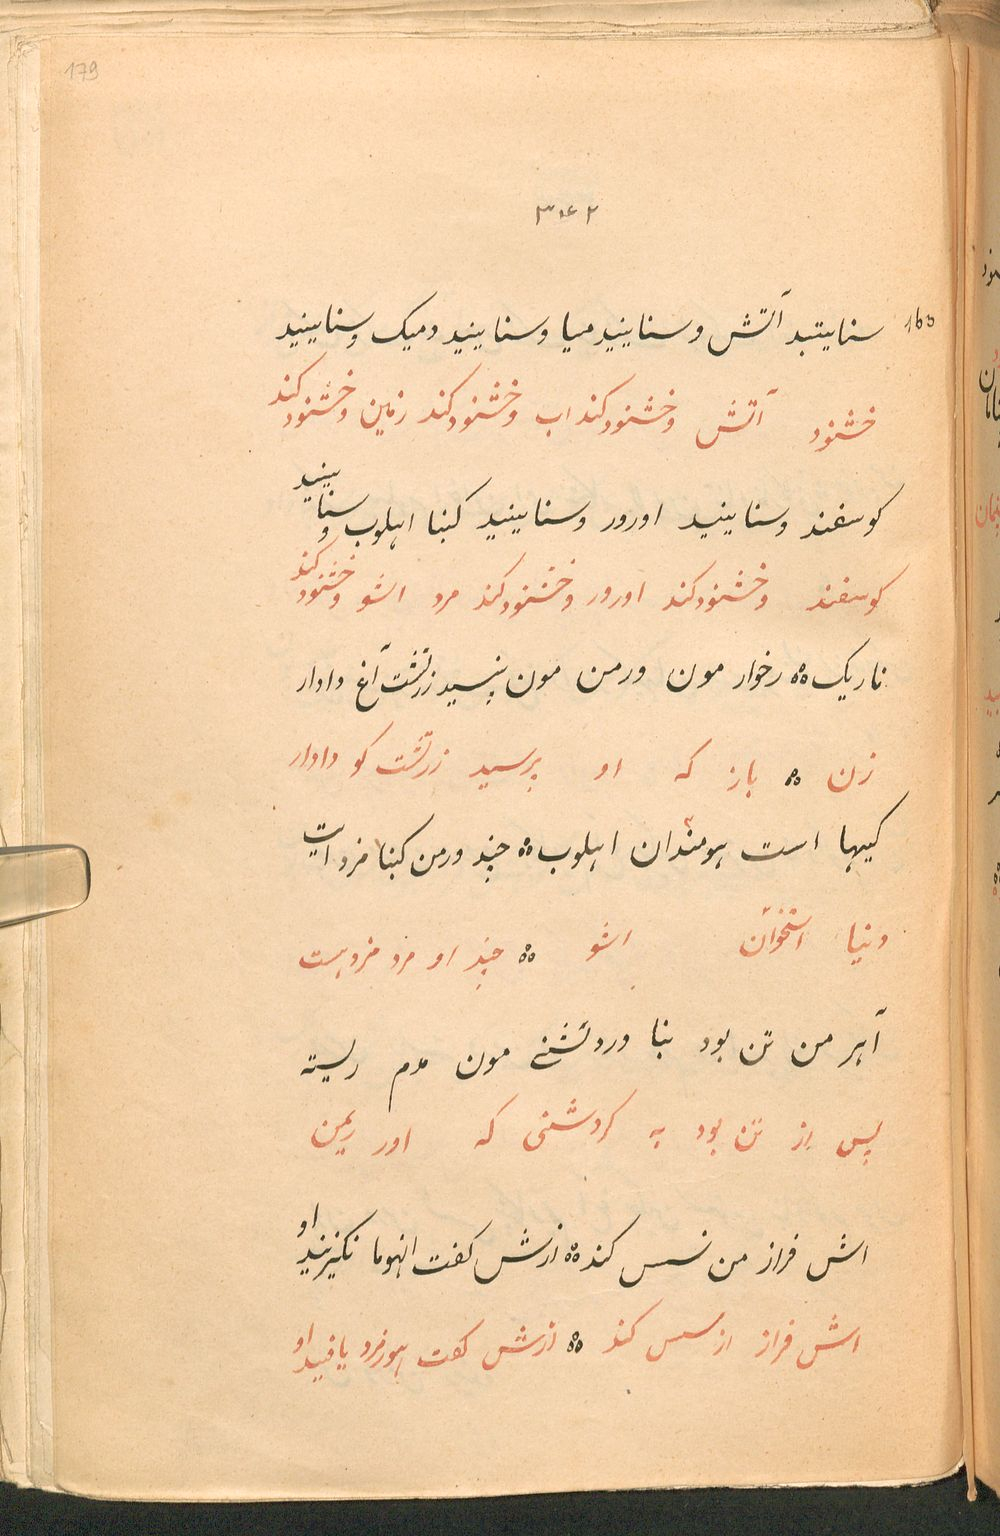 179
۳۴۲
163
سنایتبد آتش و سنایینید میا و سنایینید دمیک و سنایینید
خشنود آتش و خشنود کند اب و خشنود کند زمین و خشنود کند
کوسفند و سنایینید اورور و سنایینید کبنا اهلوب و سنایینید
کوسفند و خشنود کند اورور و خشنود کند مرد اشو و خشنود کند
ناریک ؞ رخوار مون ورمن مون پنسید زرتشت آغ دادار
زن ؞ باز که او پرسید زرتشت کو دادار
کیهها است هومندان اهلوب ؞ چند ورمن کبنا مزد ایت
دنیا استخوان اشو ؞ چند او مرد مزد هست
آهر من تن بود بنا وردشنی مون مدم ریسته
پس از تن بود به کردشنی که اور ریمن
اش فراز من نسس کند ؞ ازش کفت انهوما نکیزیند او
اش فراز از سس کند ؞ ازش کفت هورمزد یافید او